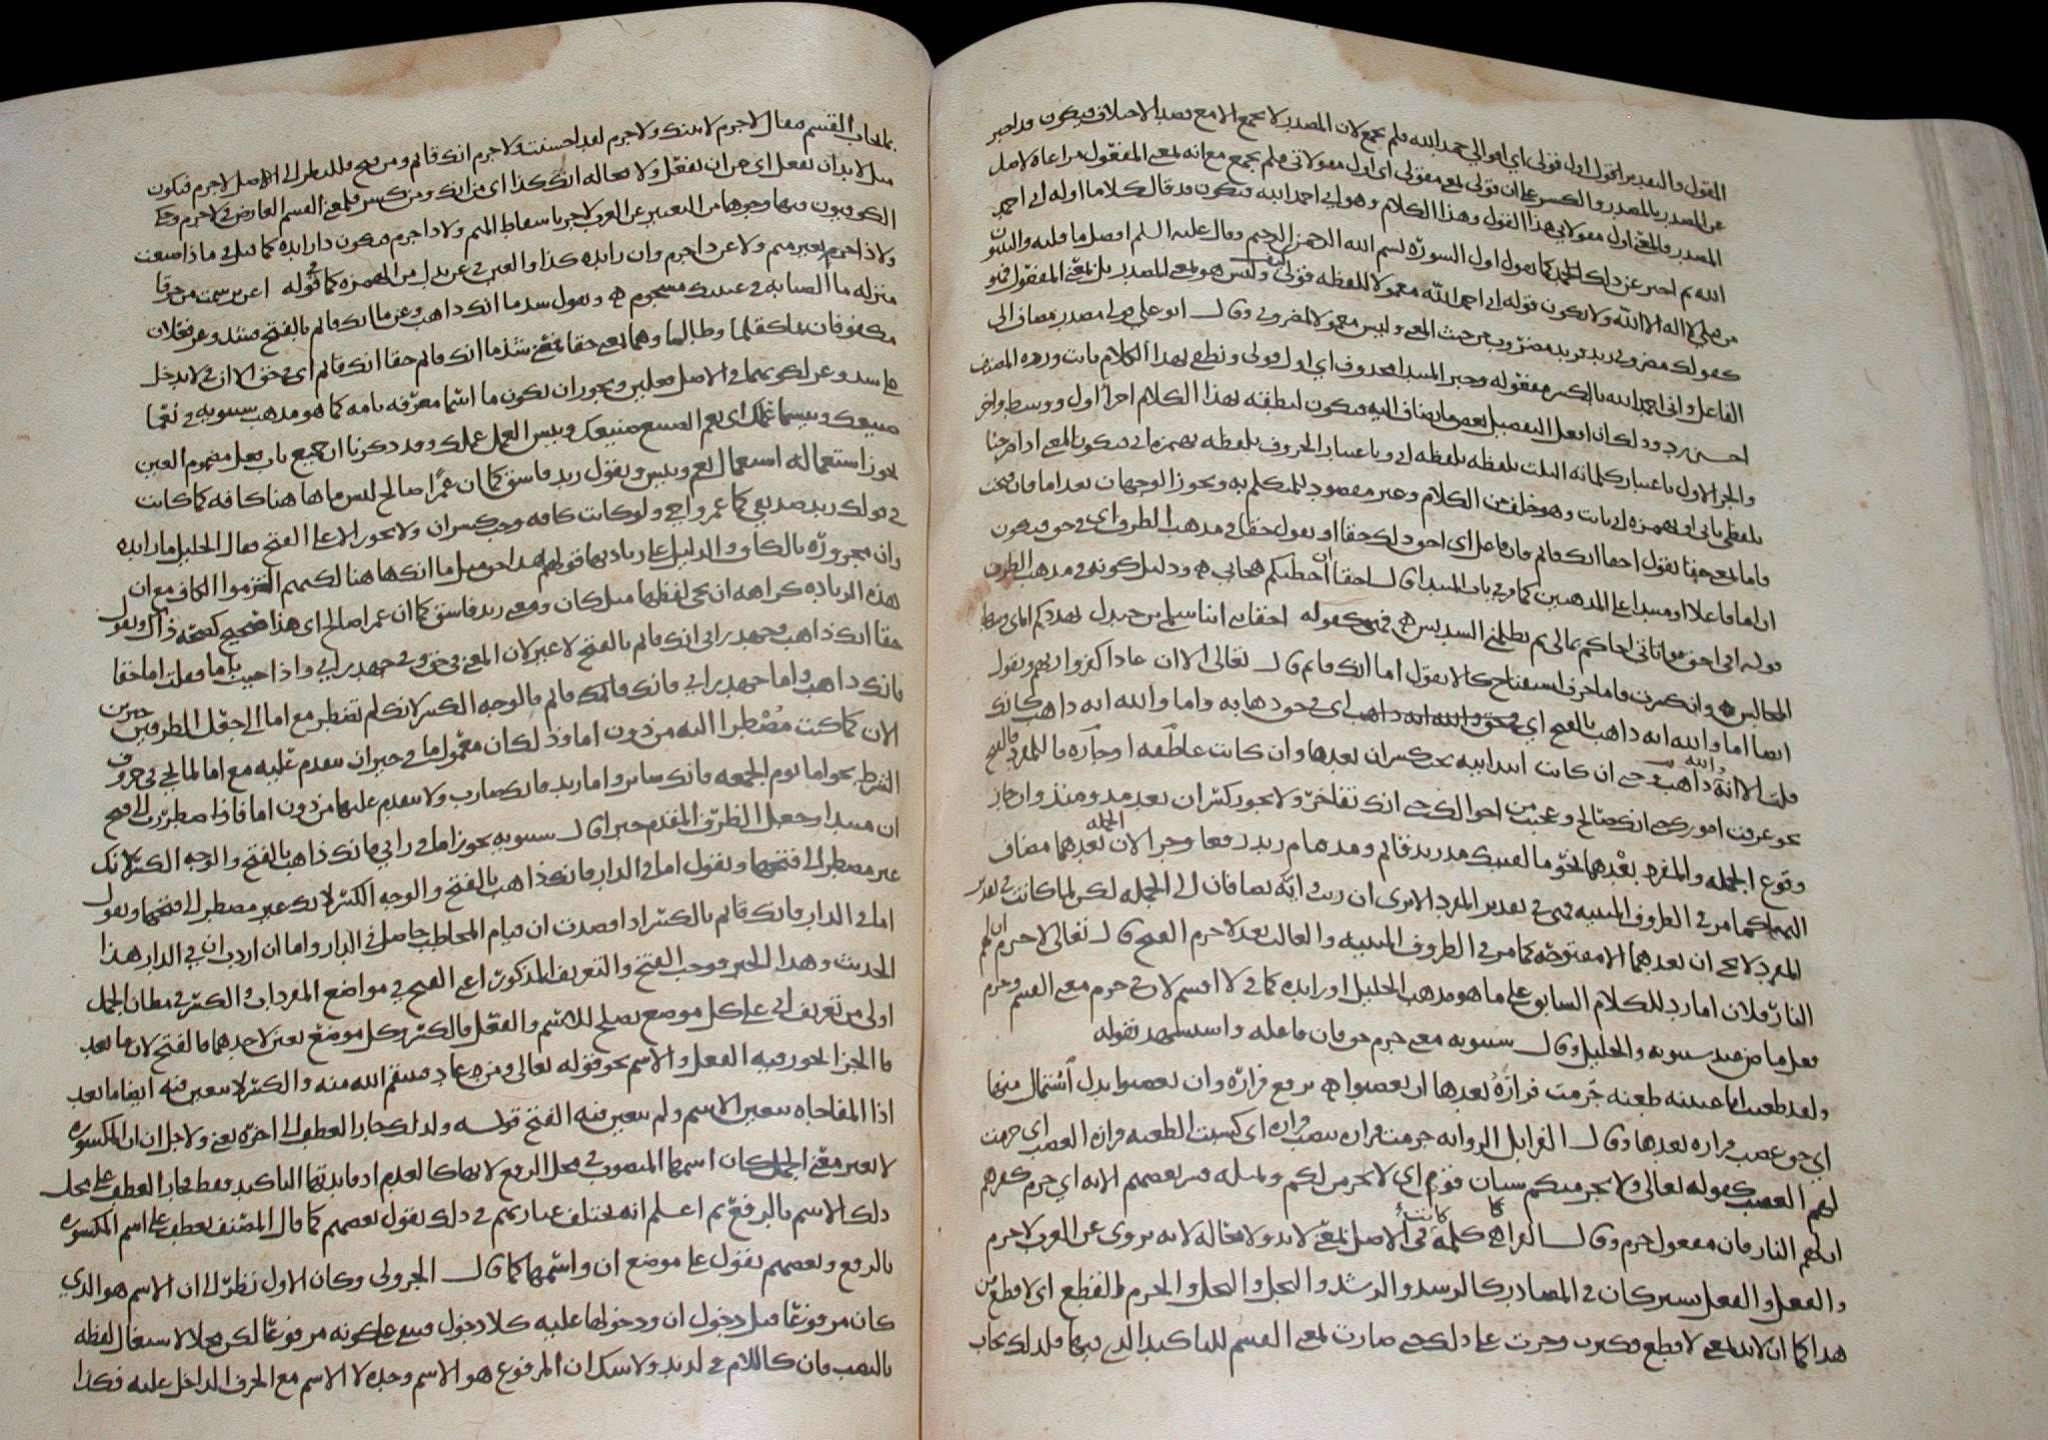 المقول والتقدير اول قولى اى اقوالى حمد الله فلم يجمع لان المصدر لا يجمع الا مع قصد الاختلاف فيكون قد اخبر
عن المصدر بالمصدر والكسر على ان قولى بمعنى مقولى اى اول مقولاتى فلم يجمع مع انه بمعنى المفعول مراعاة لاصل
المصدر والمعنى اول مقولاتى هذا القول وهذا الكلام وهو انى احمد الله فيكون قد قال كلاما اوله انى احمد
الله ثم اخبر عن ذلك الحمد كما يقول اول السورة بسم الله الرحمن الرحيم وقال عليه السلم افضل ما قلته والنبيون
من قبلى لا اله الا الله ولا يكون قوله انى احمد الله معمولا للفظة قولى وليس هو بمعنى المصدر بل بمعنى المفعول فهو
كقولك مضروبى زيد فزيد مضروب من حيث المعنى وليس معمولا لمضروبى وقال ابو على قولى مصدر مضاف الى
الفاعل وانى احمد الله بالكسر مفعوله وخبر المبتدا محذوف اى اول قولى ونطقى بهذا الكلام ثابت ورده المصنف
احسن رد وذلك ان افعل التفضيل بعض ما يضاف اليه فيكون لنطقه بهذا الكلام اجزا اول ووسط واخر
والجزء الاول باعتبار كلماته الثلث تلفظه بلفظة انى وباعتبار الحروف تلفظه بهمزة انى فيكون المعنى اذا صرحنا
تلفظى بانى او بهمزة انى ثابت وهو خلف من الكلام وغير مقصود للمتكلم به ويجوز الوجهان بعد اما فان فتحت
فاما بمعنى حقا تقول احقا انك قائم فان فاعل اى احق ذلك حقا او تقول حقا فى مذهب الظرف اى فى حق فيكون
ان اما فاعلا او مبتدا على المذهبين كما مر فى باب المبتدا قال احقا ان اخطلكم هجانى ه ودليل كونه فى مذهب الظرف
قوله افى الحق مواتاتى اخاكم بمالى ثم يظلمنى السديس
المجالس ه وان كسرت فاما حرف استفتاح كالا تقول اما انك قائم قال تعالى الا ان عادا كفروا ربهم وتقول
ايضا اما والله انه ذاهب بالفتح اى فى حق والله انه ذاهب اى فى حق ذهابه واما والله انه ذاهب كانك
قلت الا انه والله ذاهب وحتى ان كانت ابتدائية يجب كسر ان بعدها وان كانت عاطفة او جارة فالفتح للمفرد
نحو عرفت امورك حتى انك صالح وعجبت من احوالك حتى انك تفاخر ولا يجوز كسر ان بعد مذ ومنذ وان جاز
وقوع الجملة والمفرد بعدهما نحو ما لقيتك مذ زيد قائم ومذ هام زيد رفعا وجرا لان الجملة بعدهما مضاف
اليها كما مر فى الظروف المبنية فهى فى تقدير المفرد الا ترى ان ريث واية يضافان الى الجملة لكن لما كانت فى تقدير
المفرد لا يجى ان بعدهما الا مفتوحة كما مر فى الظروف المبنية والغالب بعد لا جرم الفتح قال تعالى لا جرم ان لهم
النار فلا ن اما رد للكلام السابق على ما هو مذهب الخليل او زايدة كما فى لا اقسم لان فى جرم معنى القسم وجرم
فعل ماض عند سيبويه والخليل وقال سيبويه معنى جرم حق فان فاعله واستشهد بقوله
ولقد طعنت ابا عيينة طعنة جرمت فزارة بعدها ان يغضبوا ه برفع فزارة وان يغضبوا بدل اشتمال منها
اى حق غضب فزارة بعدها وقال الفرا بل الرواية جرمت فزارة بنصب فزارة اى كسبت الطعنة فزارة الغضب اى جرمت
لهم الغضب كقوله تعالى ولا يجرمنكم شنان قوم اى لا يجرمن لكم ومثله فسر بعضهم الاية اى جرم كفرهم
ان لهم النار فان مفعول جرم وقال الفرا هى كلمة كانت فى الاصل بمعنى لا بد ولا محالة لانه يروى عن العرب لا جرم
والفعل والفعل يشتركان فى المصادر كالرشد والرشد والبخل والبخل والجرم القطع اى لا قطع من
هذا كما ان لا بد بمعنى لا قطع فكثرت وجرت على ذلك حتى صارت بمعنى القسم للتاكيد الذى فيها فلذلك تجاب
بما يجاب به القسم فيقال لا جرم لاتينك ولا جرم لقد احسنت ولا جرم انك قائم ومن فتح فللنظر الى الاصل لا جرم فيكون
مثل لا بد ان تفعل اى من ان تفعل ولا محالة انك كذا اى من انك ومن كسر فلمعنى القسم العارض فى لا جرم وحكى
الكوفيون فيها وجوها من التغيير عن العرب لا جر باسقاط الميم ولا ذا جرم فيكون ذا زايدة كما قيل فى ماذا صنعت
ولا ذا جر بغير ميم ولا عن ذا جرم وان زايدة كذا والعين فى عن بدل من الهمزة كما فى قوله اعن ترسمت من خرقا
منزلة ما الصبابة من عينيك مسجوم ه وتقول شد ما انك ذاهب وعز ما انك قائم بالفتح فشد وعز فعلان
مكفوفان بما كقلما وطالما وهما بمعنى حقا فمعنى شد ما انك قائم حقا انك قائم اى فى حق
ما شد وعز لكونهما فى الاصل فعلين ويجوز ان يكون ما اسما معرفة تامة كما هو مذهب سيبويه فى نعما
صنيعك وبئسما عملك اى نعم الصنيع صنيعك وبئس العمل عملك وقد ذكرنا ان جميع باب فعل مضموم العين
يجوز استعماله استعمال نعم وبئس وتقول زيد فاسق كما ان عمرا صالح ليس ما ها هنا كافة كما كانت
فى قولك زيد صديقى كما عمرو اخى ولو كانت كافة وجب كسر ان ولا يجوز الا على الفتح فقال الخليل ما زايدة
وان مجرورة بالكاف والدليل على زيادتها قولهم هذا حق مثل ما انك ها هنا لكنهم التزموا الكاف مع ان
هذه الزيادة كراهة ان يجى لفظها مثل كان ومعنى زيد فاسق كما ان عمرا صالح اى هذا صحيح كصحة ذاك وتقول
حقا انك ذاهب وجهد رايى انك قائم بالفتح لا غير لان المعنى فى حق وفى جهد رايى واذا جيت باما فقلت اما حقا
فانك ذاهب واما جهد رايى فانك قائم فالوجه الكسر لانك لم تضطر مع اما الى جعل الظرفين خبرين
الان كما كنت مضطرا اليه من دون اما وذلك ان معمول ما فى حيز ان يتقدم عليه مع اما لما يجى فى حروف
الشرط نحو اما يوم الجمعة فانك سائر واما زيدا فانك ضارب ولا يتقدم عليها من دون اما فاذا اضطررت الى فتح
ان مبتدا وجعل الظرف المتقدم خبرا قال سيبويه يجوز اما فى رايى فانك ذاهب بالفتح والوجه الكسر لانك
غير مضطر الى فتحها وتقول اما فى الدار فانك ذاهب بالفتح والوجه الكسر لانك غير مضطر الى فتحها وتقول
اما فى الدار فانك قائم بالكسر اذا قصدت ان قيام المخاطب حاصل فى الدار واما ان اردت ان فى الدار هذا
الحديث وهذا الخبر فوجب الفتح والتعريف المذكور اعنى الفتح فى مواضع المفردات والكسر فى مظان الجمل
اولى من تعريف ابى على كل موضع يصلح للاسم والفعل فالكسر وكل موضع تعين لاحدهما فالفتح لان ما بعد
فا الجزا يجوز فيه الفعل والاسم نحو قوله تعالى ومن عاد فينتقم الله منه والكسر لا يتعين فيه ايضا ما بعد
اذا المفاجاة يتعين الاسم ولم يتعين فيه الفتح قوله ولذلك جاز العطف الى اخره يعنى ولاجل ان ان المكسورة
لا تغير معنى الجملة كان اسمها المنصوب فى محل الرفع لانها كالعدم اذ فايدتها التاكيد فقط فجاز العطف على محل
ذلك الاسم بالرفع ثم اعلم انه يختلف عبارتهم فى ذلك يقول بعضهم كما قال المصنف يعطف على اسم المكسورة
بالرفع وبعضهم يقول على موضع ان واسمها كما قال الجزولى وكان الاول نظر الى ان الاسم هو الذى
كان مرفوعا قبل دخول ان ودخولها عليه كلا دخول فبقى على كونه مرفوعا لكن محلا لاشتغال لفظه
بالنصب فان كاللام فى لزيد ولا شك ان المرفوع هو الاسم وحده لا الاسم مع الحرف الداخل عليه فكذا